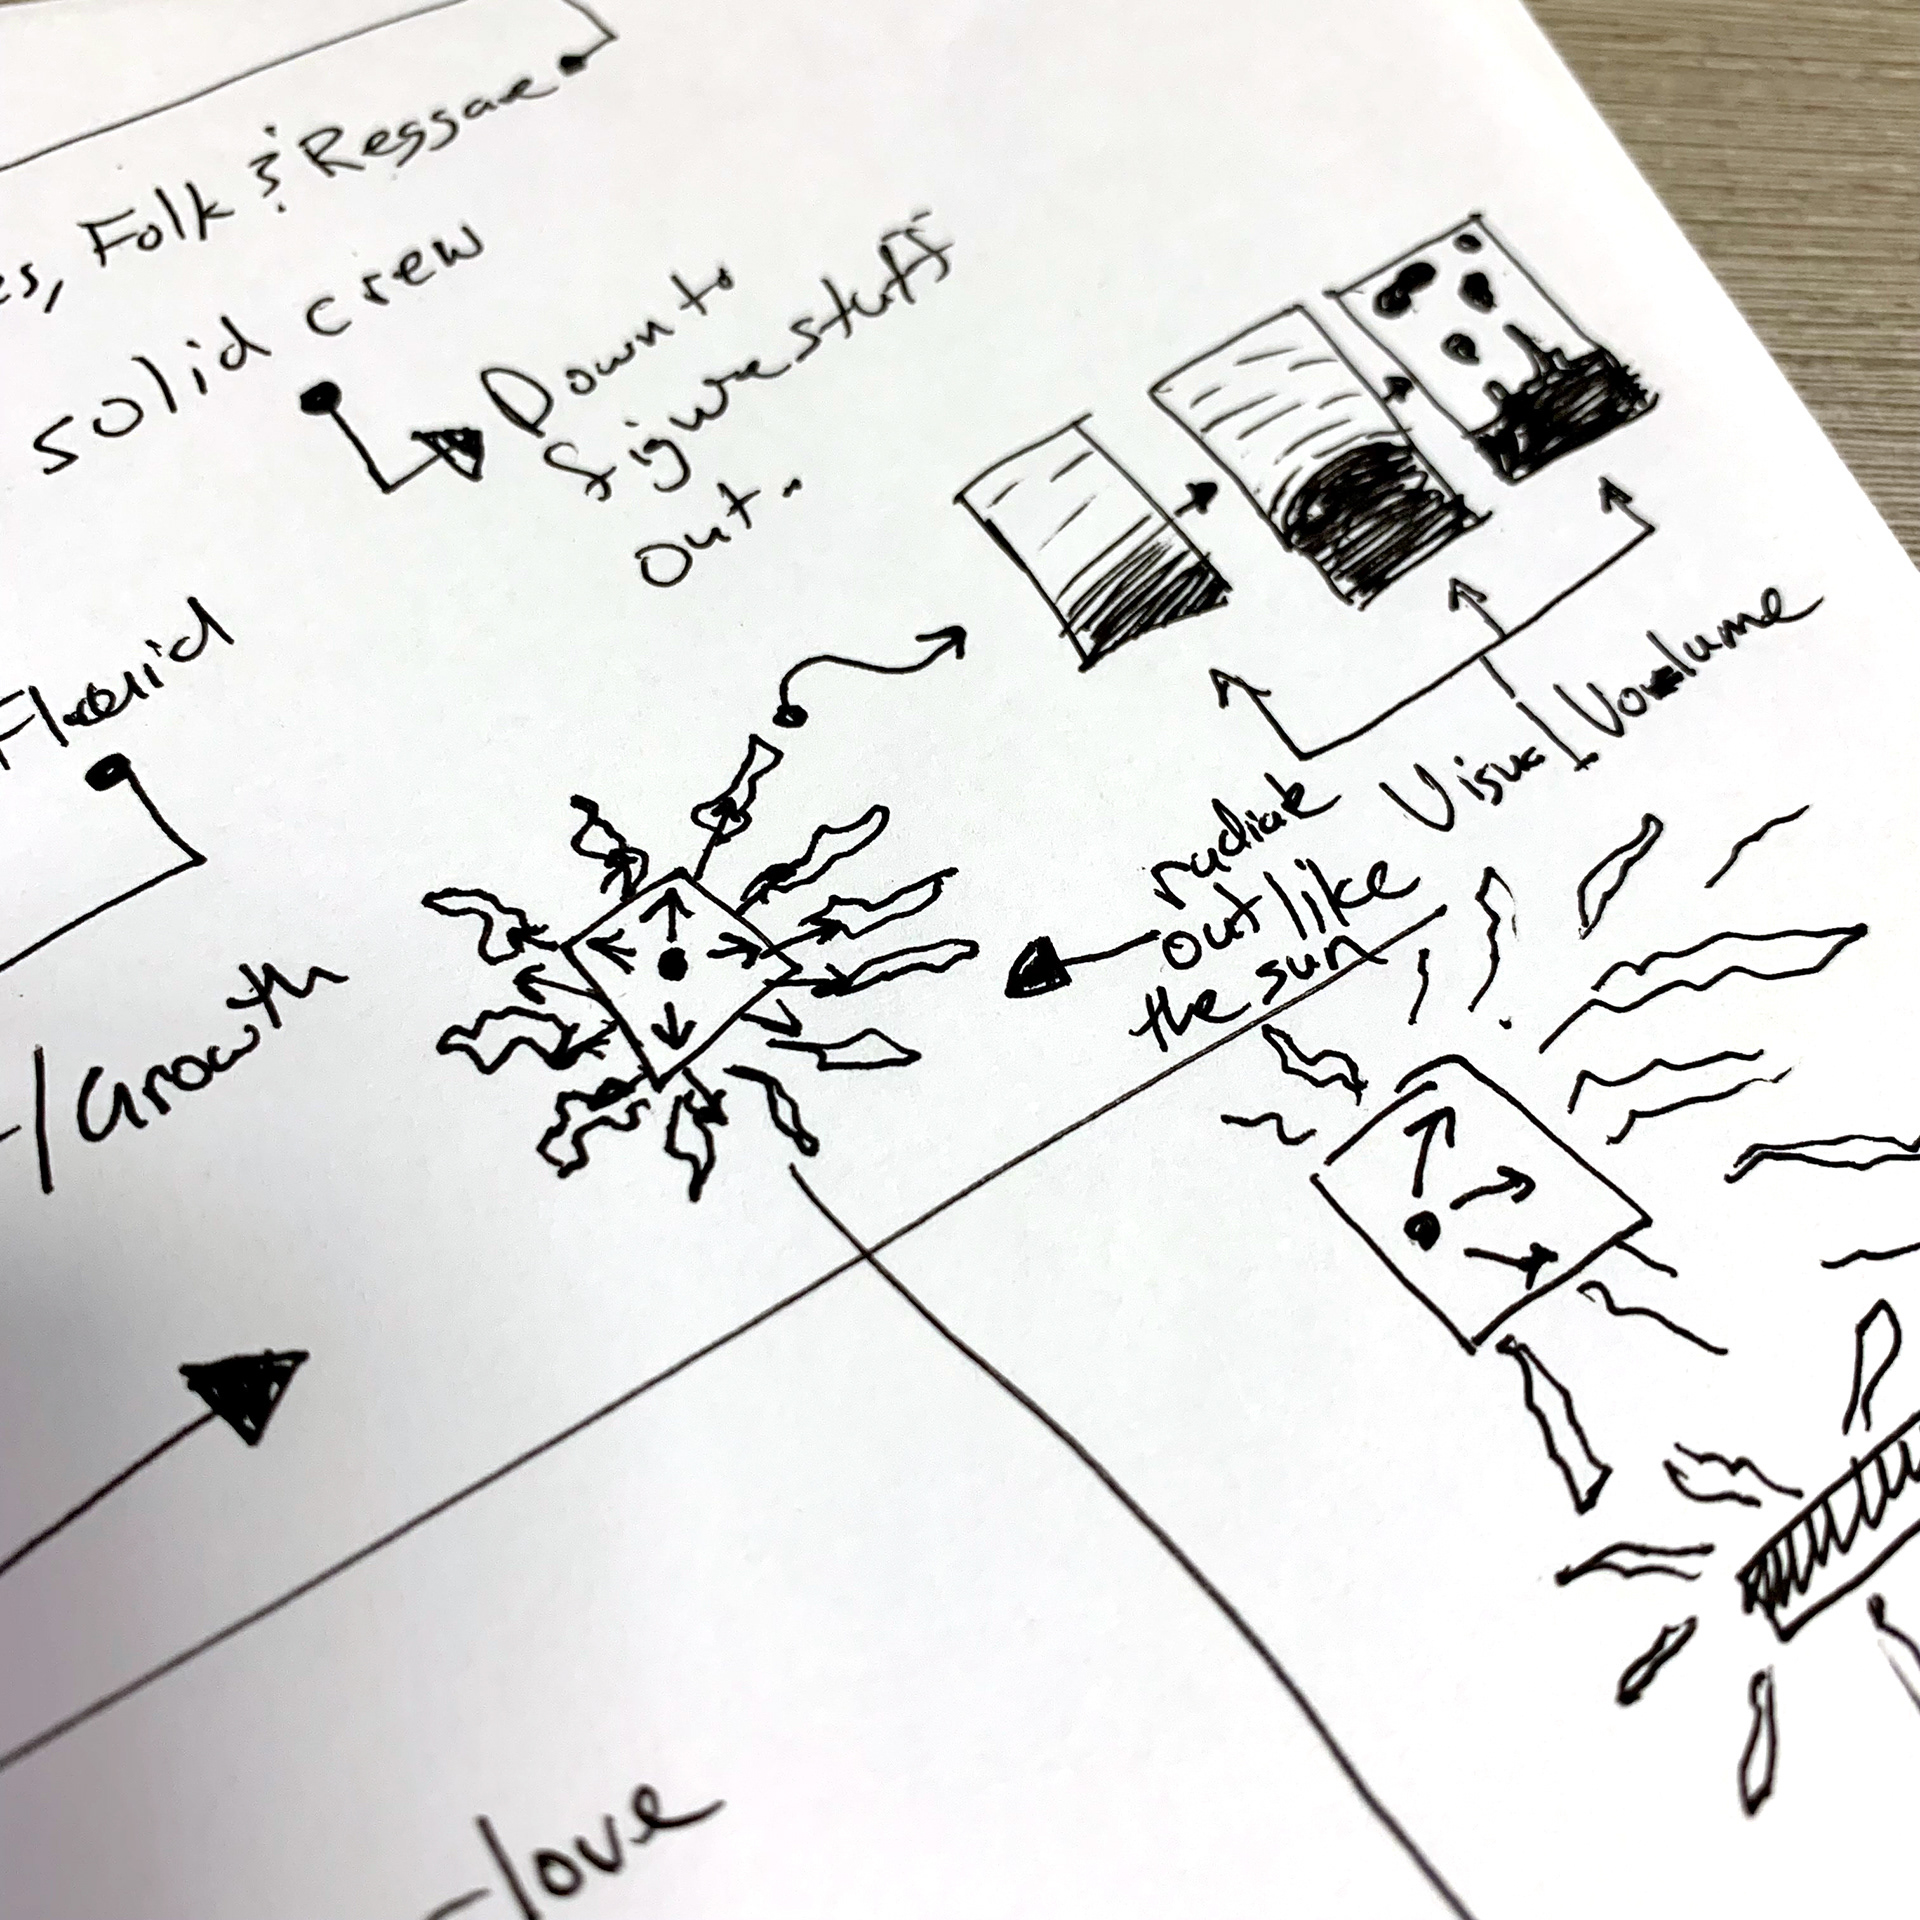 es, Folk & Reggae
solid crew
Down to
figure stuff
out.
Fluid
Visual Volume
radiate
out like
the sun
/Growth
-love